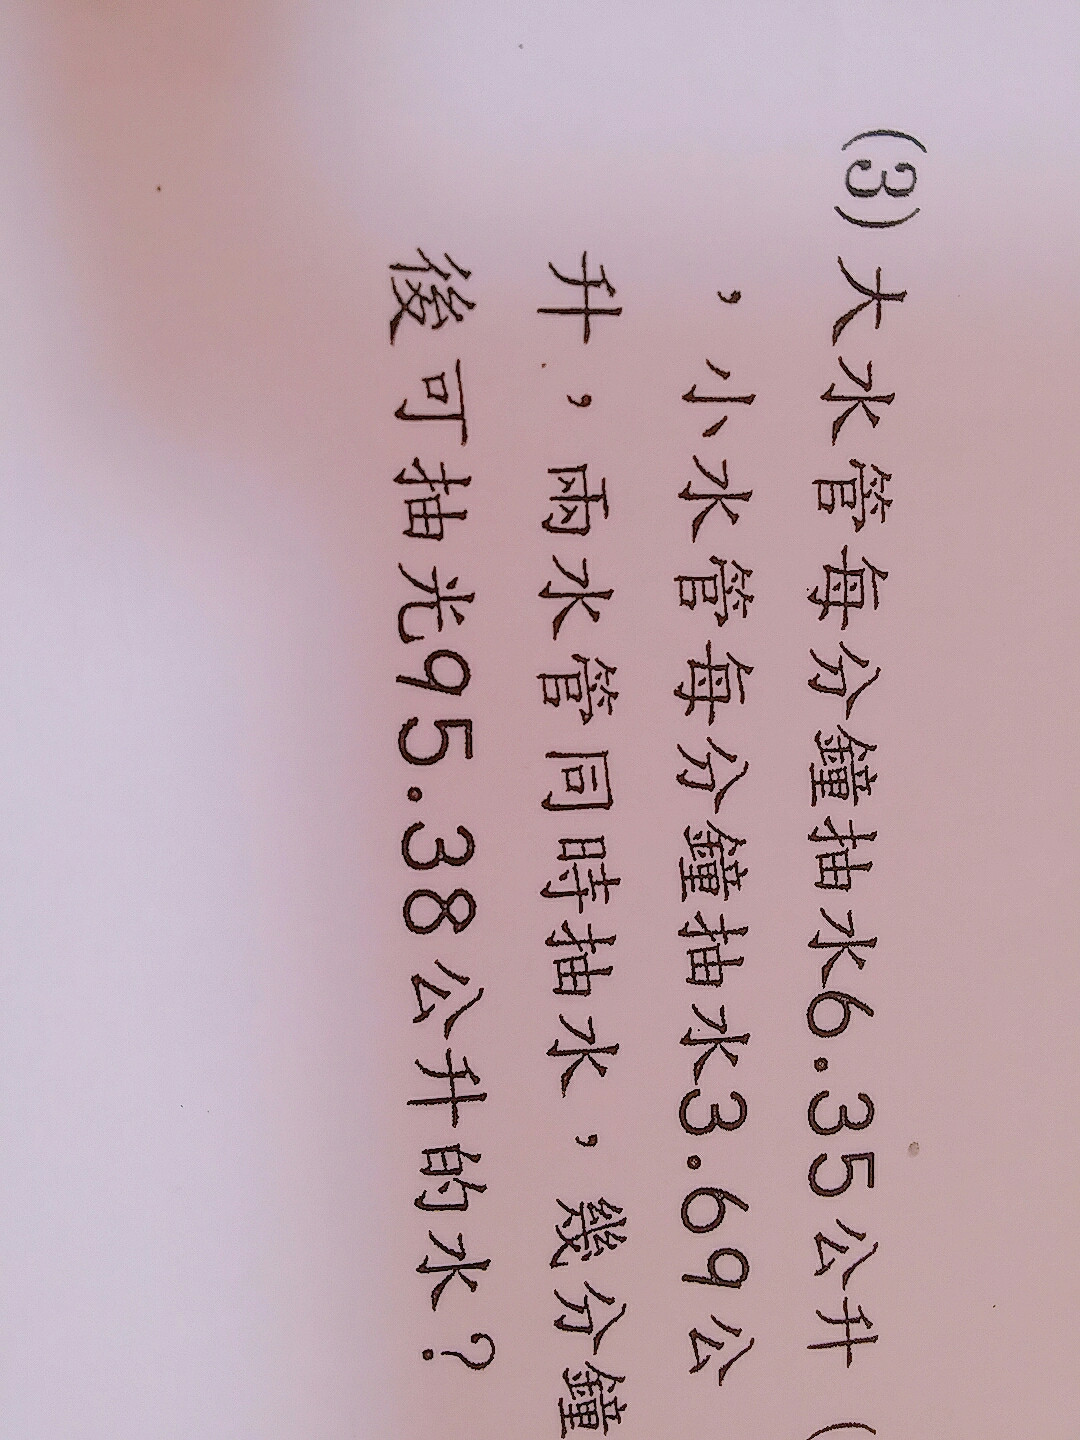 (3)大水管每分鐘抽水6.35公升(
，小水管每分鐘抽水3.69公
升，兩水管同時抽水，幾分鐘
後可抽光95.38公升的水？